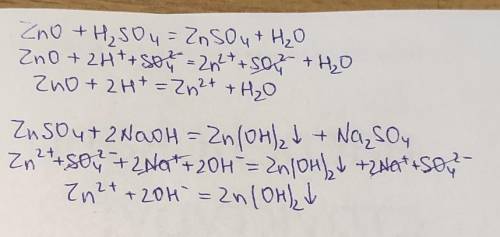 ZnO + H₂SO₄ = ZnSO₄ + H₂O
ZnO + 2H⁺ + SO₄²⁻ = Zn²⁺ + SO₄²⁻ + H₂O
ZnO + 2H⁺ = Zn²⁺ + H₂O
ZnSO₄ + 2NaOH = Zn(OH)₂↓ + Na₂SO₄
Zn²⁺ + SO₄²⁻ + 2Na⁺ + 2OH⁻ = Zn(OH)₂↓ + 2Na⁺ + SO₄²⁻
Zn²⁺ + 2OH⁻ = Zn(OH)₂↓